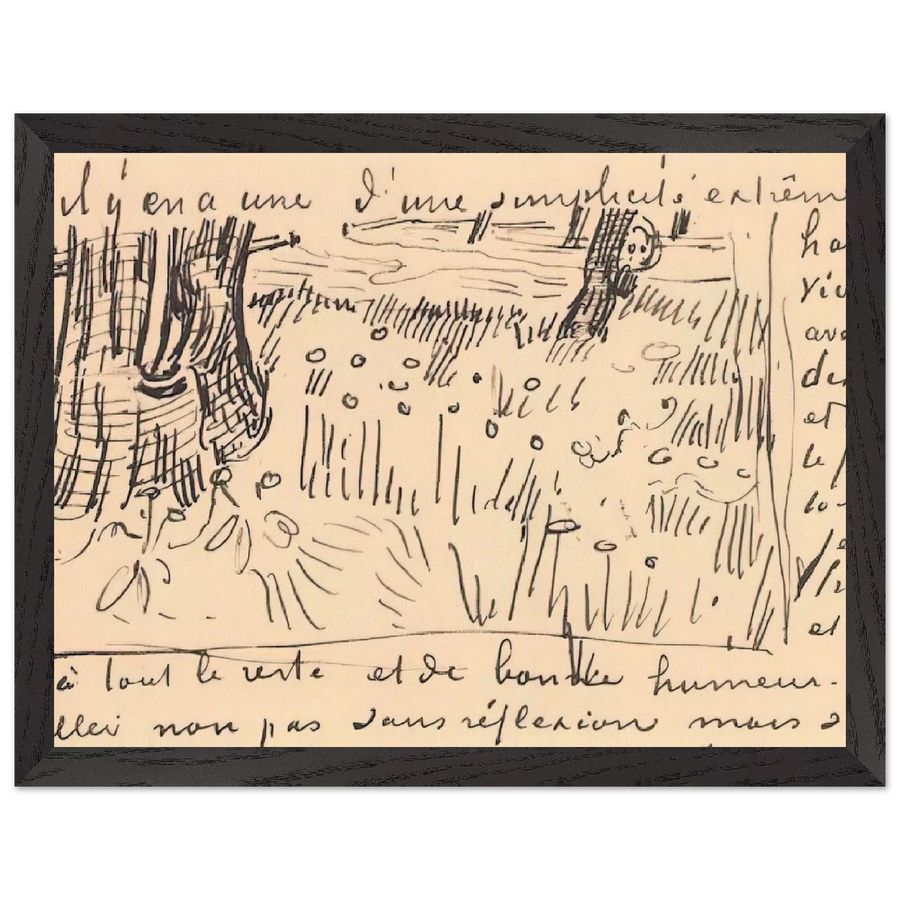 il y en a une d'une simplicité extrême
ho
viv
ave
de
et
le
et
à tout le reste et de bonne humeur.
non pas sans réflexion mais